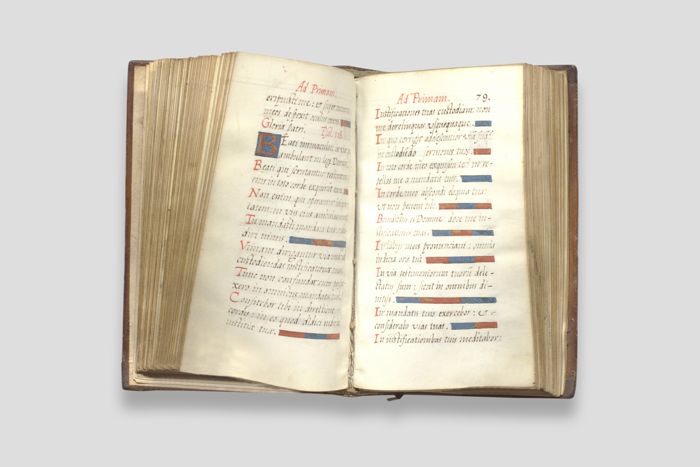 Ad Primam.
eripuisti me: et super inimicos
meos despexit oculus meus
Gloria patri. Psal. 118.
BEati immaculati in via: qui
ambulant in lege Domini.
Beati qui scrutantur testimonia
eius: in toto corde exquirunt eum
Non enim qui operantur iniqui
tatem: in viis eius ambulaverunt
Tu mandasti mandata tua custo
diri nimis.
Vtinam dirigantur viae meae ad
custodiendas iustificationes tuas
Tunc non confundar cum perspe
xero in omnibus mandatis tuis
Confitebor tibi in directione
cordis: in eo quod didici iudicia
iustitiae tuae.
Ad Primam. 79.
Iustificationes tuas custodiam: non
me derelinquas usquequaque.
In quo corrigit adolescentior viam suam?
in custodiēdo sermones tuos.
In toto corde meo exquisivi te: ne re-
pellas me a mandatis tuis.
In corde meo abscondi eloquia tua:
ut non peccem tibi.
Benedictus es Domine: doce me iu-
stificationes tuas.
In labijs meis pronunciavi: omnia
iudicia oris tui.
In via testimoniorum tuorū dele-
ctatus sum: sicut in omnibus di-
vitijs.
In mandatis tuis exercebor: et
considerabo vias tuas.
In iustificationibus tuis meditabor: